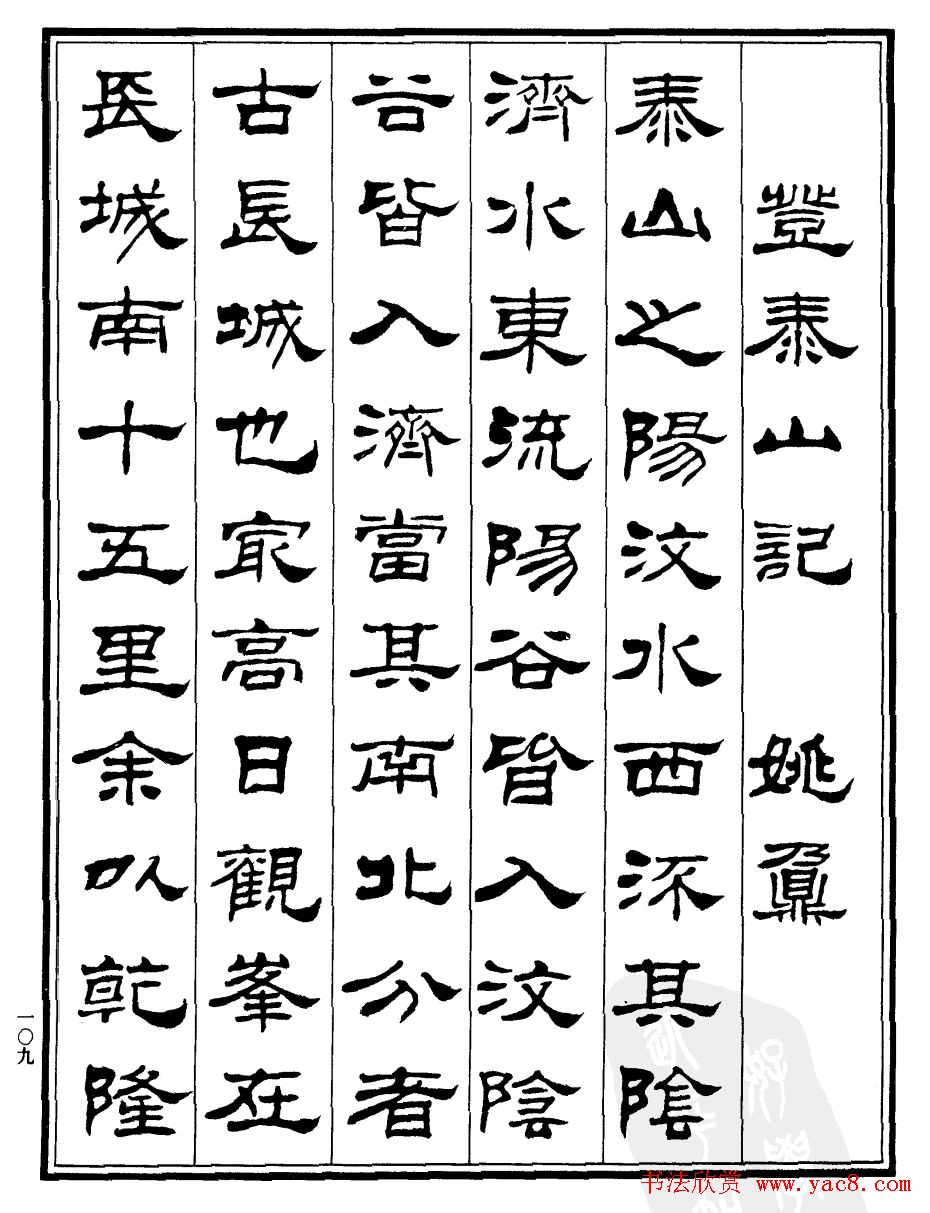 登泰山記 姚鼐
泰山之陽汶水西流其陰
濟水東流陽谷皆入汶陰
谷皆入濟當其南北分者
古長城也最高日觀峯在
長城南十五里余以乾隆
一〇九
书法欣赏 www.yac8.com